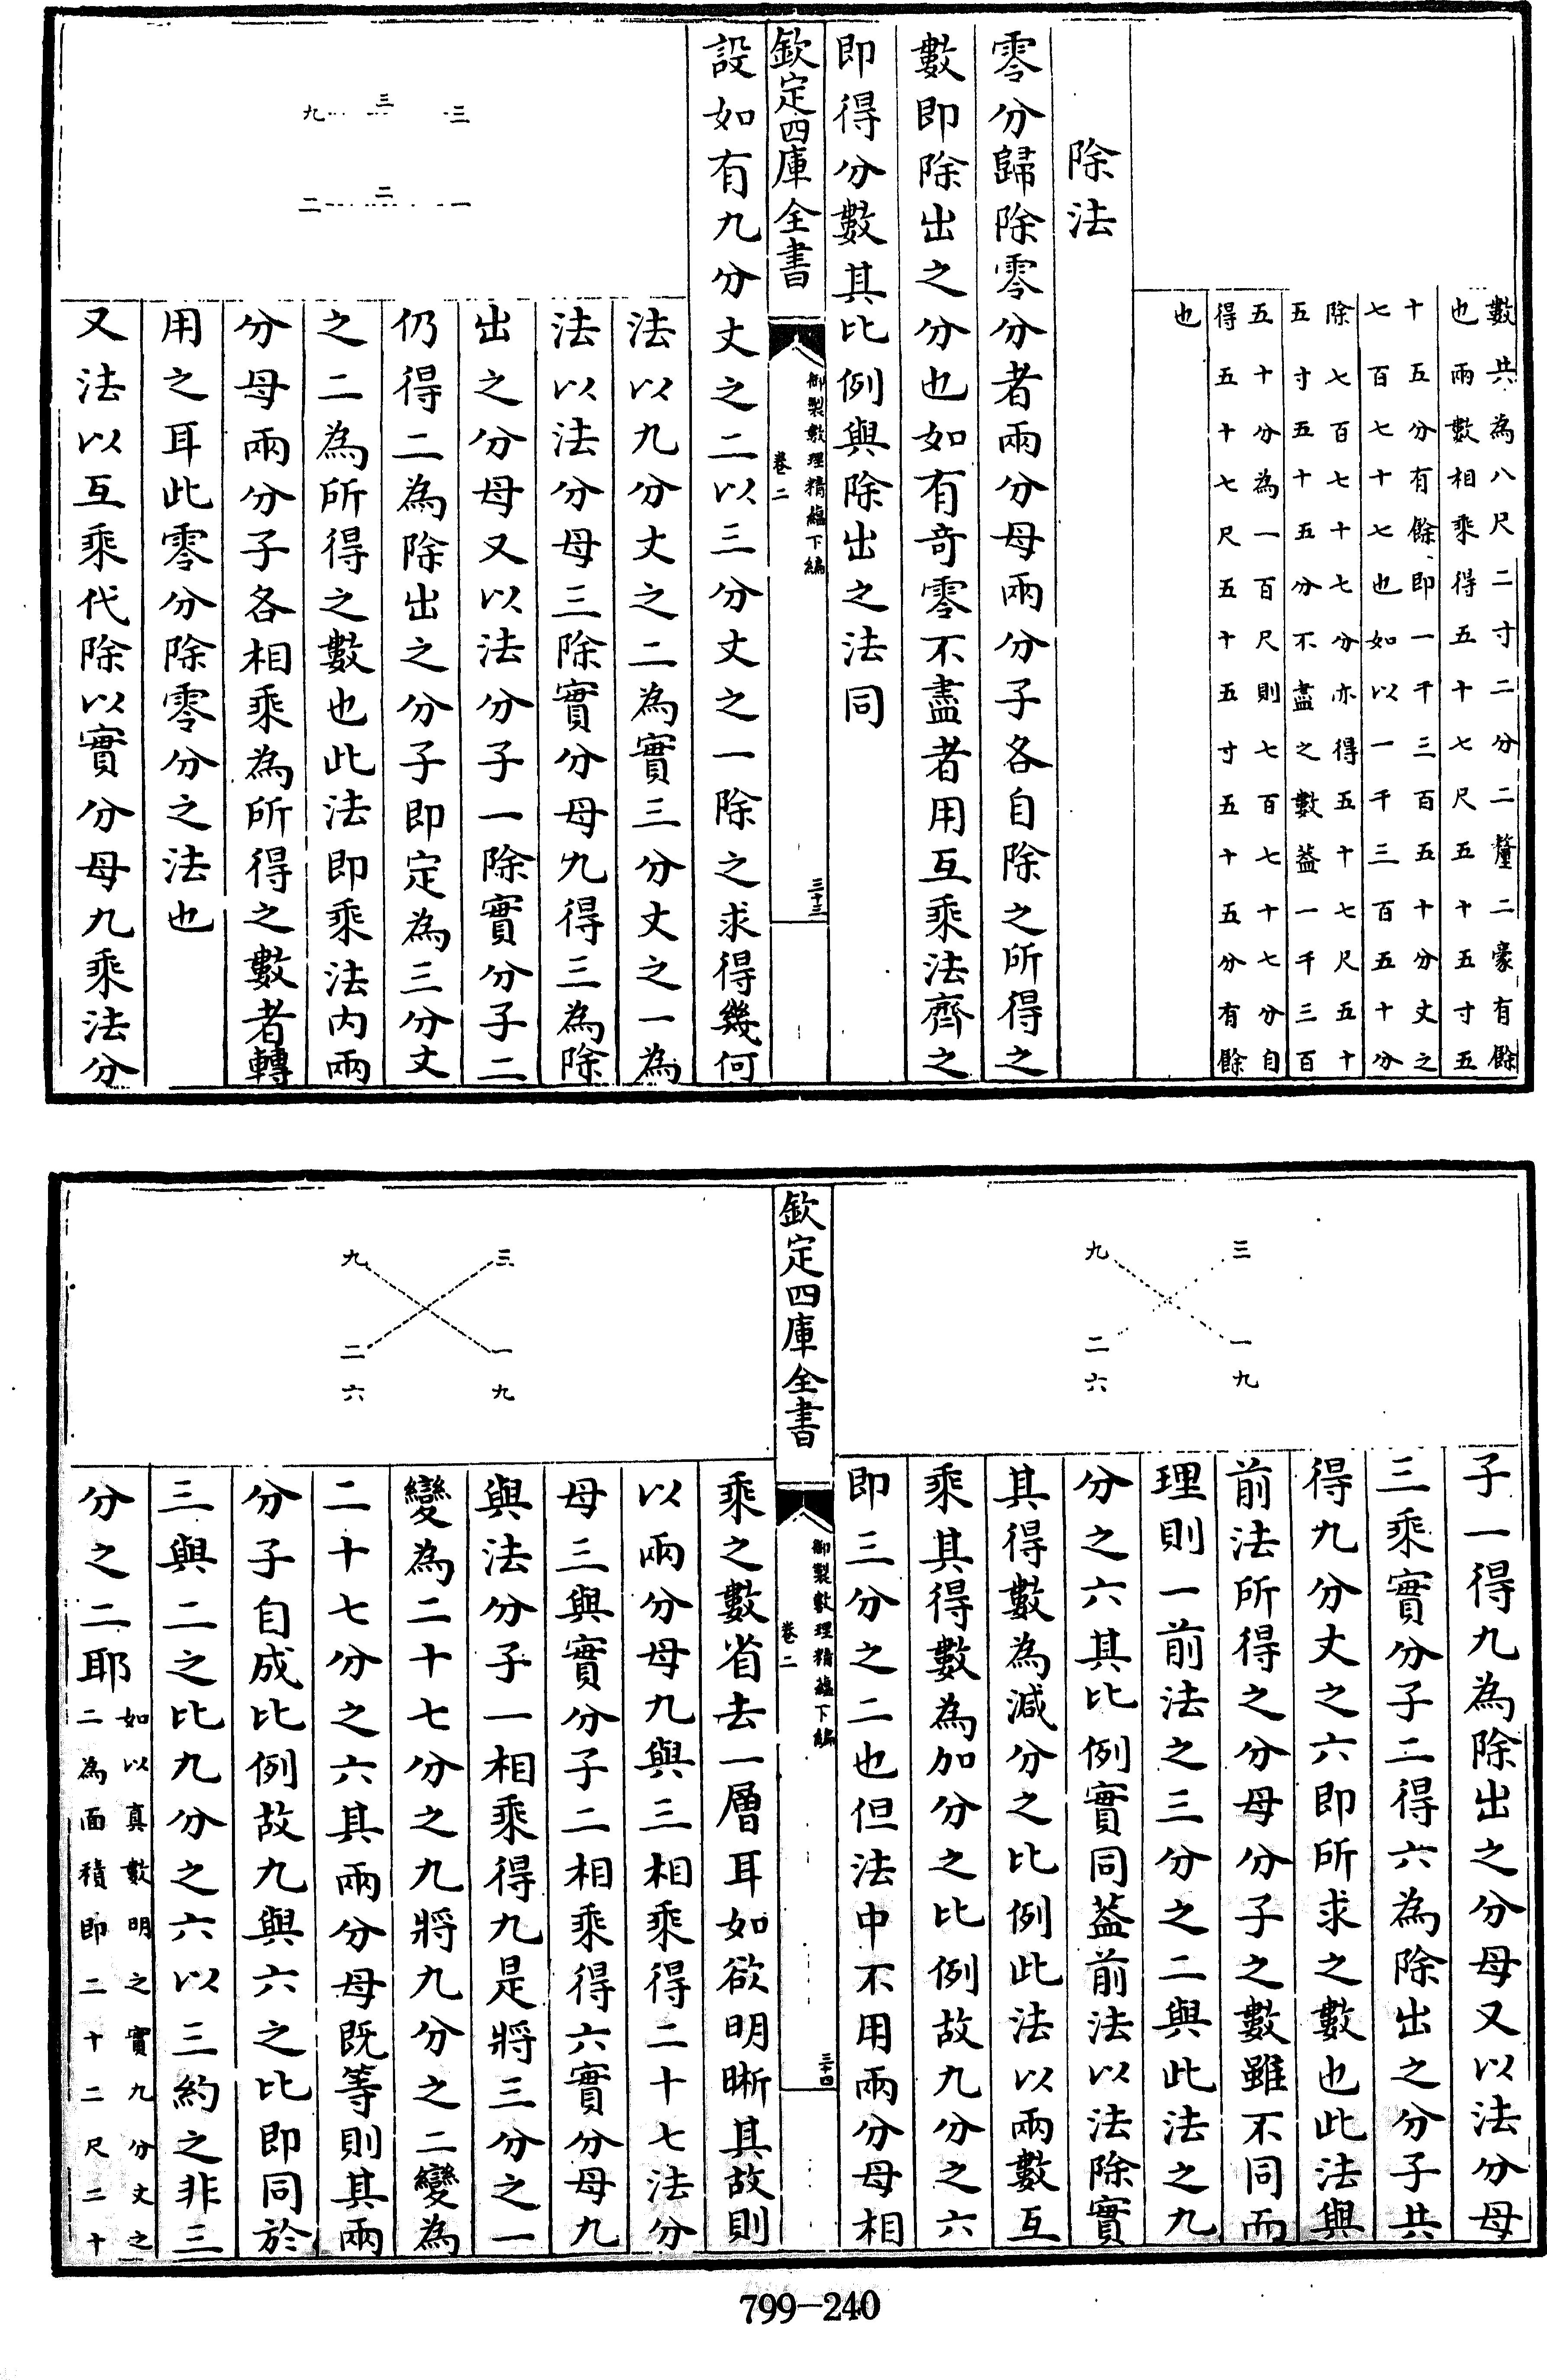 數共為八尺二寸二分二釐二豪有餘
也兩數相乘得五十七尺五十五寸五
十五分有餘即一千三百五十分丈之
七百七十七也如以一千三百五十分
除七百七十七分亦得五十七尺五十
五寸五十五分不盡之數葢一千三百
五十分為一百尺則七百七十七分自
得五十七尺五十五寸五十五分有餘
也
除法
零分歸除零分者兩分母兩分子各自除之所得之
數即除出之分也如有竒零不盡者用互乘法齊之
即得分數其比例與除出之法同
欽定四庫全書
御製數理精藴下編
卷二
三十三
設如有九分丈之二以三分丈之一除之求得幾何
三 三 九
一 二 二
法以九分丈之二為實三分丈之一為
法以法分母三除實分母九得三為除
出之分母又以法分子一除實分子二
仍得二為除出之分子即定為三分丈
之二為所得之數也此法即乘法内兩
分母兩分子各相乘為所得之數者轉
用之耳此零分除零分之法也
又法以互乘代除以實分母九乘法分
三 九
一 二
九 六
子一得九為除出之分母又以法分母
三乘實分子二得六為除出之分子共
得九分丈之六即所求之數也此法與
前法所得之分母分子之數雖不同而
理則一前法之三分之二與此法之九
分之六其比例實同葢前法以法除實
其得數為減分之比例此法以兩數互
乘其得數為加分之比例故九分之六
即三分之二也但法中不用兩分母相
欽定四庫全書
御製數理精藴下編
卷二
三十四
乘之數省去一層耳如欲明晰其故則
三 九
一 二
九 六
以兩分母九與三相乘得二十七法分
母三與實分子二相乘得六實分母九
與法分子一相乘得九是將三分之一
變為二十七分之九將九分之二變為
二十七分之六其兩分母既等則其兩
分子自成比例故九與六之比即同於
三與二之比九分之六以三約之非三
分之二耶
如以真數明之實九分丈之
二為面積即二十二尺二十
799-240